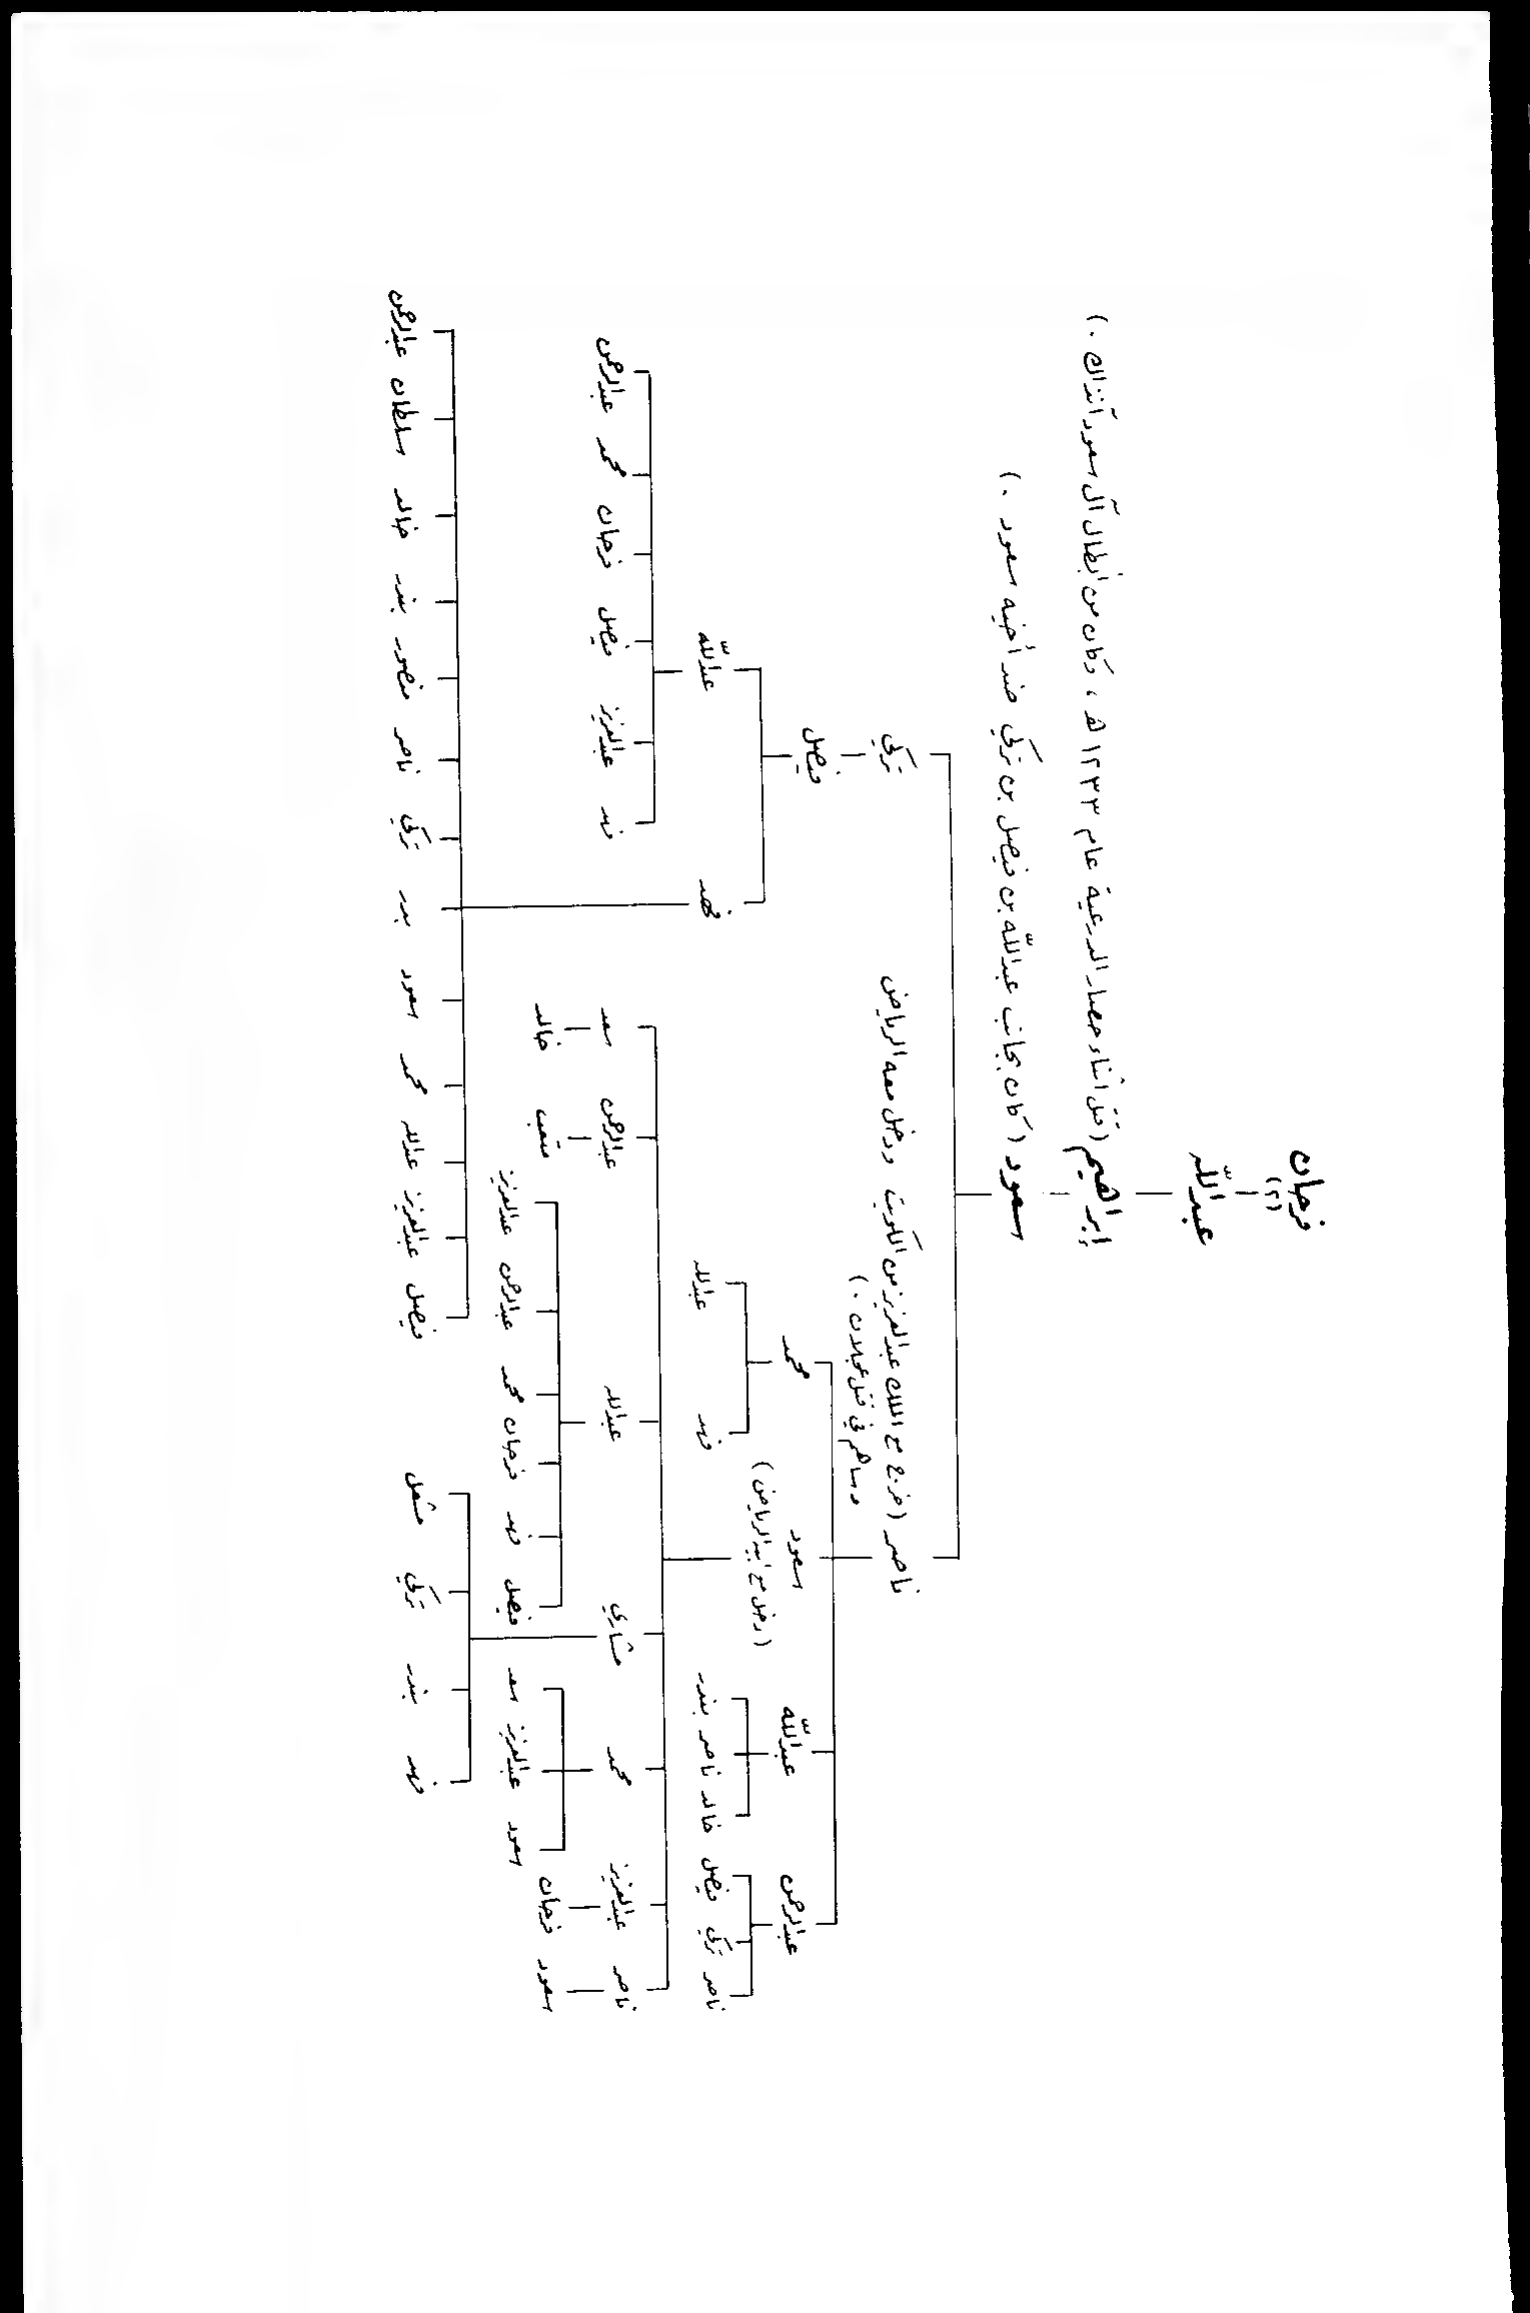 فرحان
(٢)
عبدالله
إبراهيم (قتل أثناء حصار الدرعية عام ١٢٣٣ هـ ، وكان من أبطال آل سعود آنذاك .)
سعود (كان بجانب عبدالله بن فيصل بن تركي ضد أخيه سعود .)
ناصر (خرج مع الملك عبدالعزيز من الكويت ودخل معه الرياض
وساهم في قتل عجلان .)
تركي
فيصل
عبدالرحمن عبدالله سعود محمد
(دخل مع أبيه الرياض)
ناصر تركي فيصل خالد ناصر بندر فهد عبدالله فهد عبدالله
ناصر عبدالعزيز محمد مشاري عبدالله عبدالرحمن سعد فهد عبدالعزيز فيصل فرحان محمد عبدالرحمن
سعود فرحان متعب خالد
سعود عبدالعزيز سعد فيصل فهد فرحان محمد عبدالرحمن عبدالعزيز
فهد بندر تركي مشعل فيصل عبدالعزيز عبدالله محمد سعود بدر تركي ناصر منصور بندر خالد سلطان عبدالرحمن